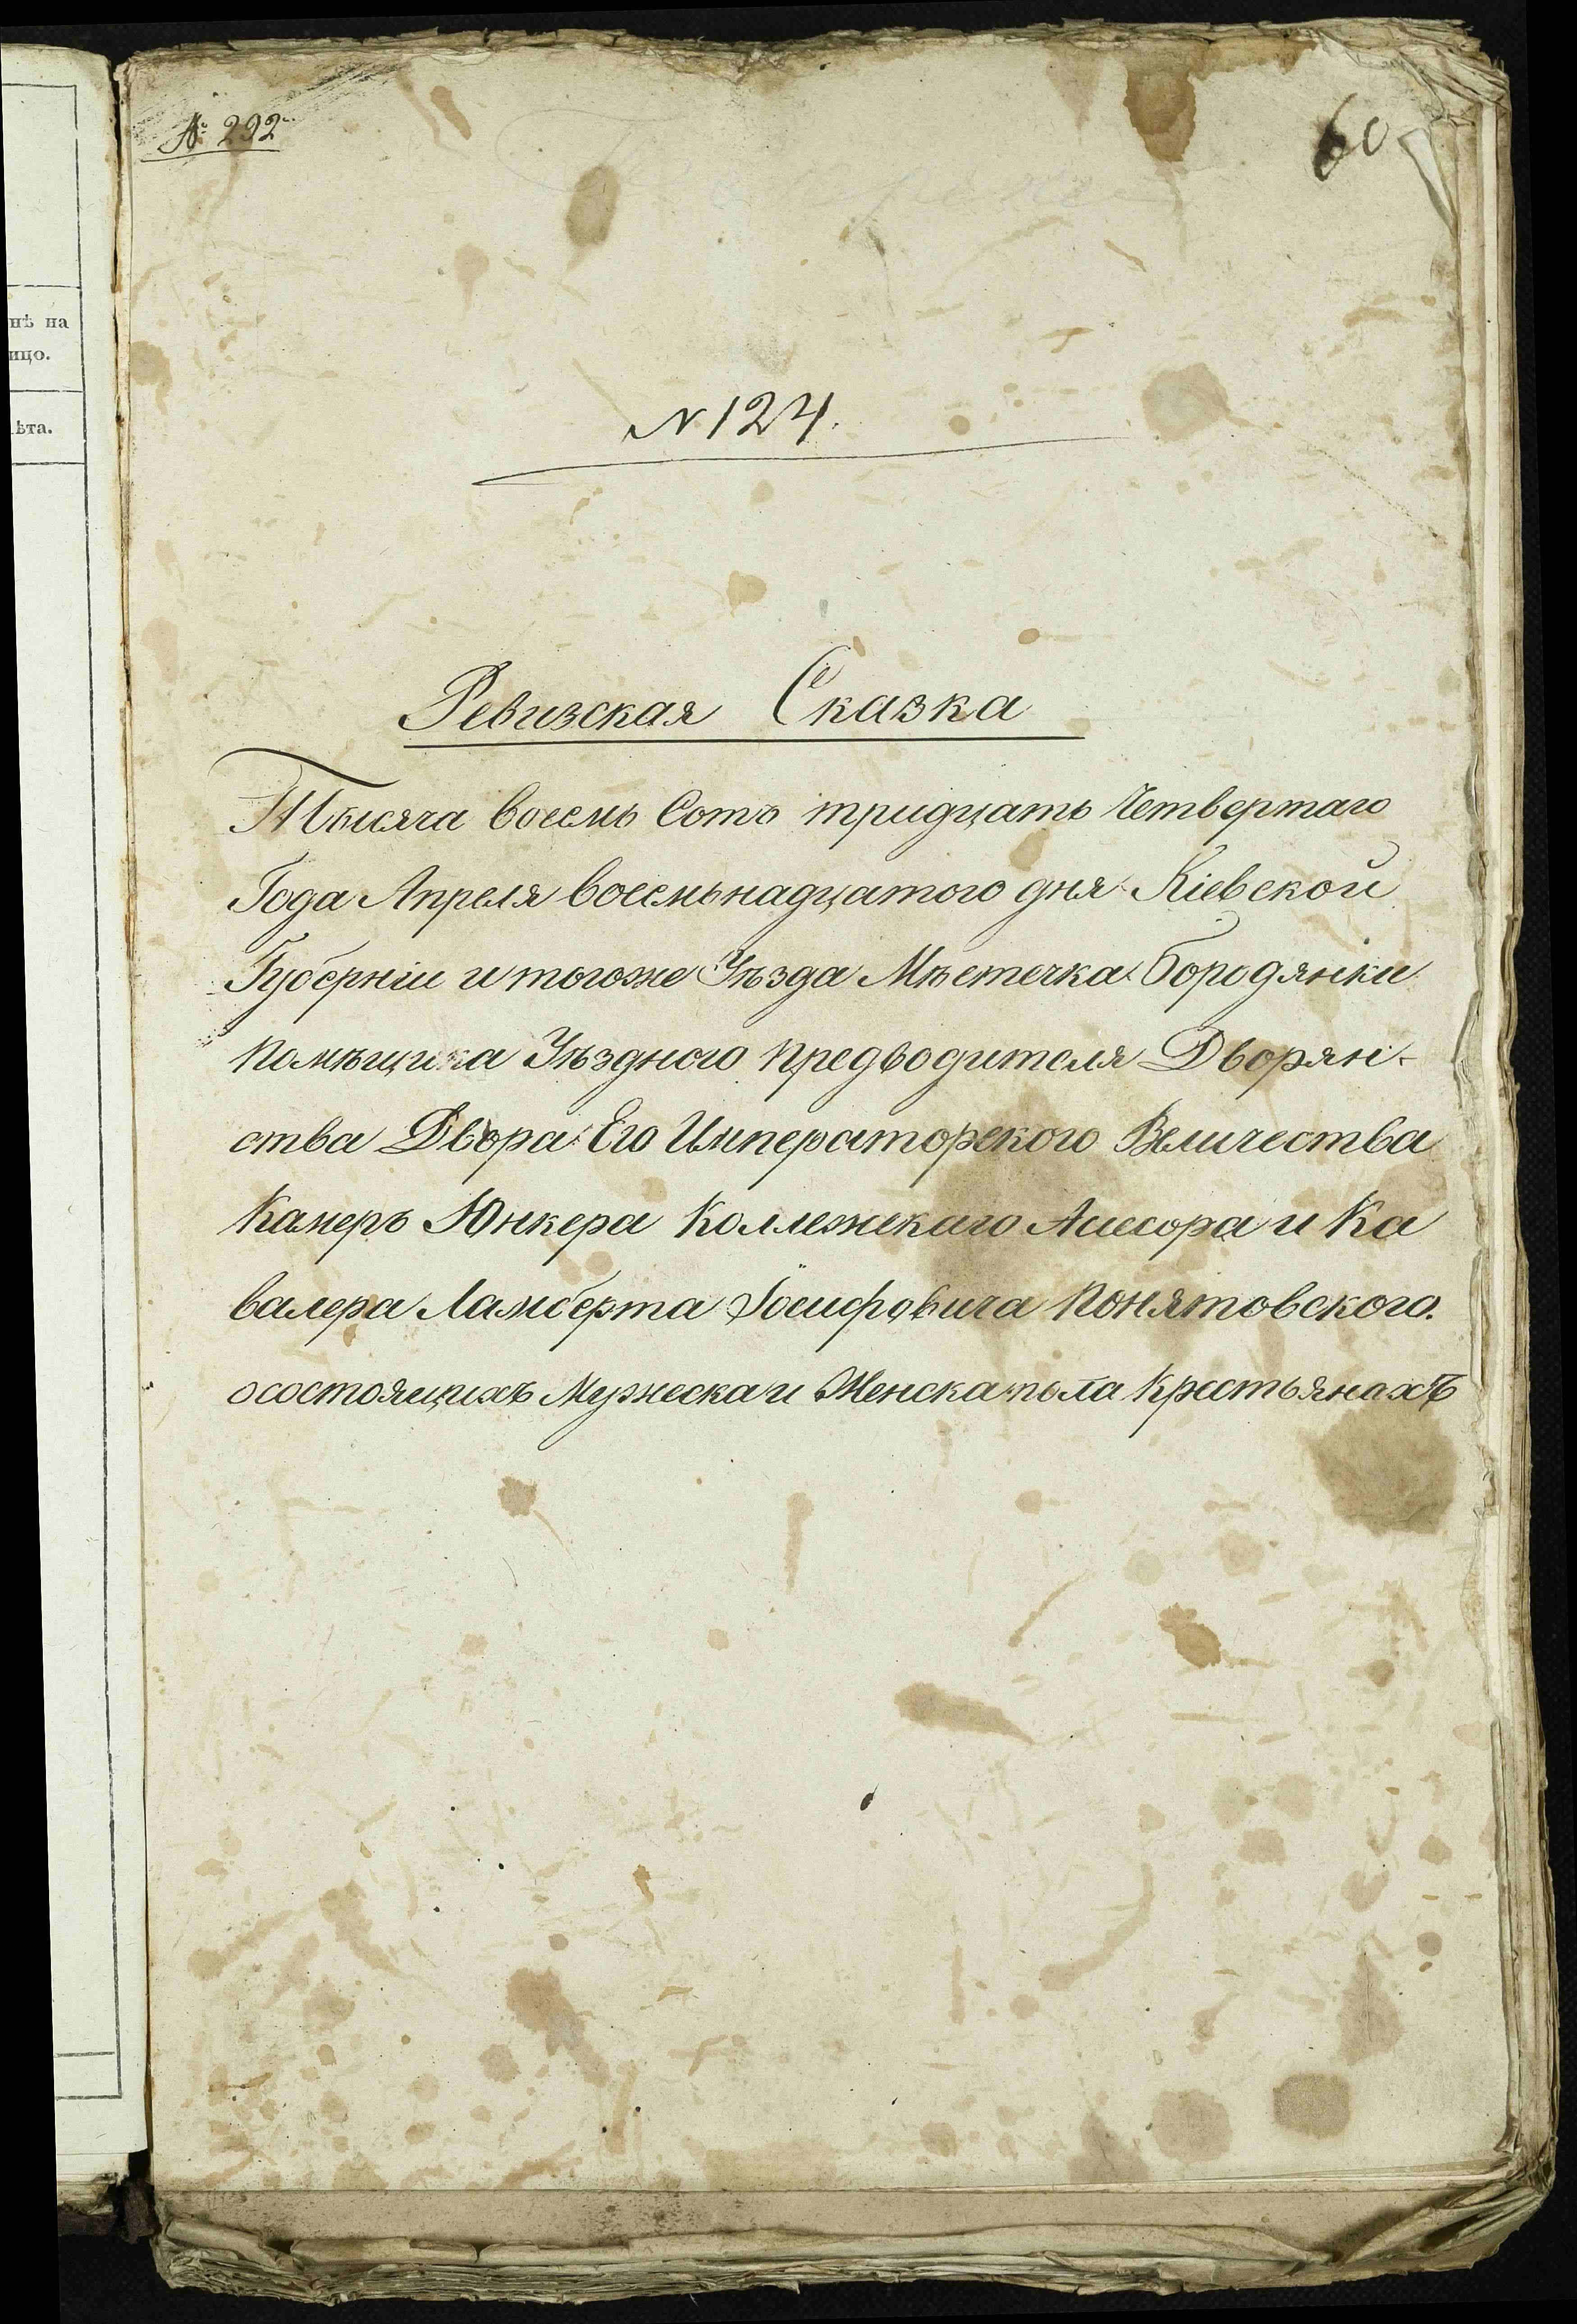 нѣ на
ицо.
ѣта.
№ 292
60
N 124.
Ревизская Сказка
Тысяча восемь Сотъ тридцать Четвертаго
Года Апреля восемьнадцатого дня Кіевской
Губерніи и тогоже Уѣзда Мѣстечка Бородянки
Помѣщика Уѣздного Предводителя Дворян-
ства Двора Его Императорского Величества
Камеръ Юнкера Коллежскаго Ассесора и Ка
валера Ламберта Іосифовича Понятовского.
осостоящихъ Мужеска и Женска пола Крестьянахъ